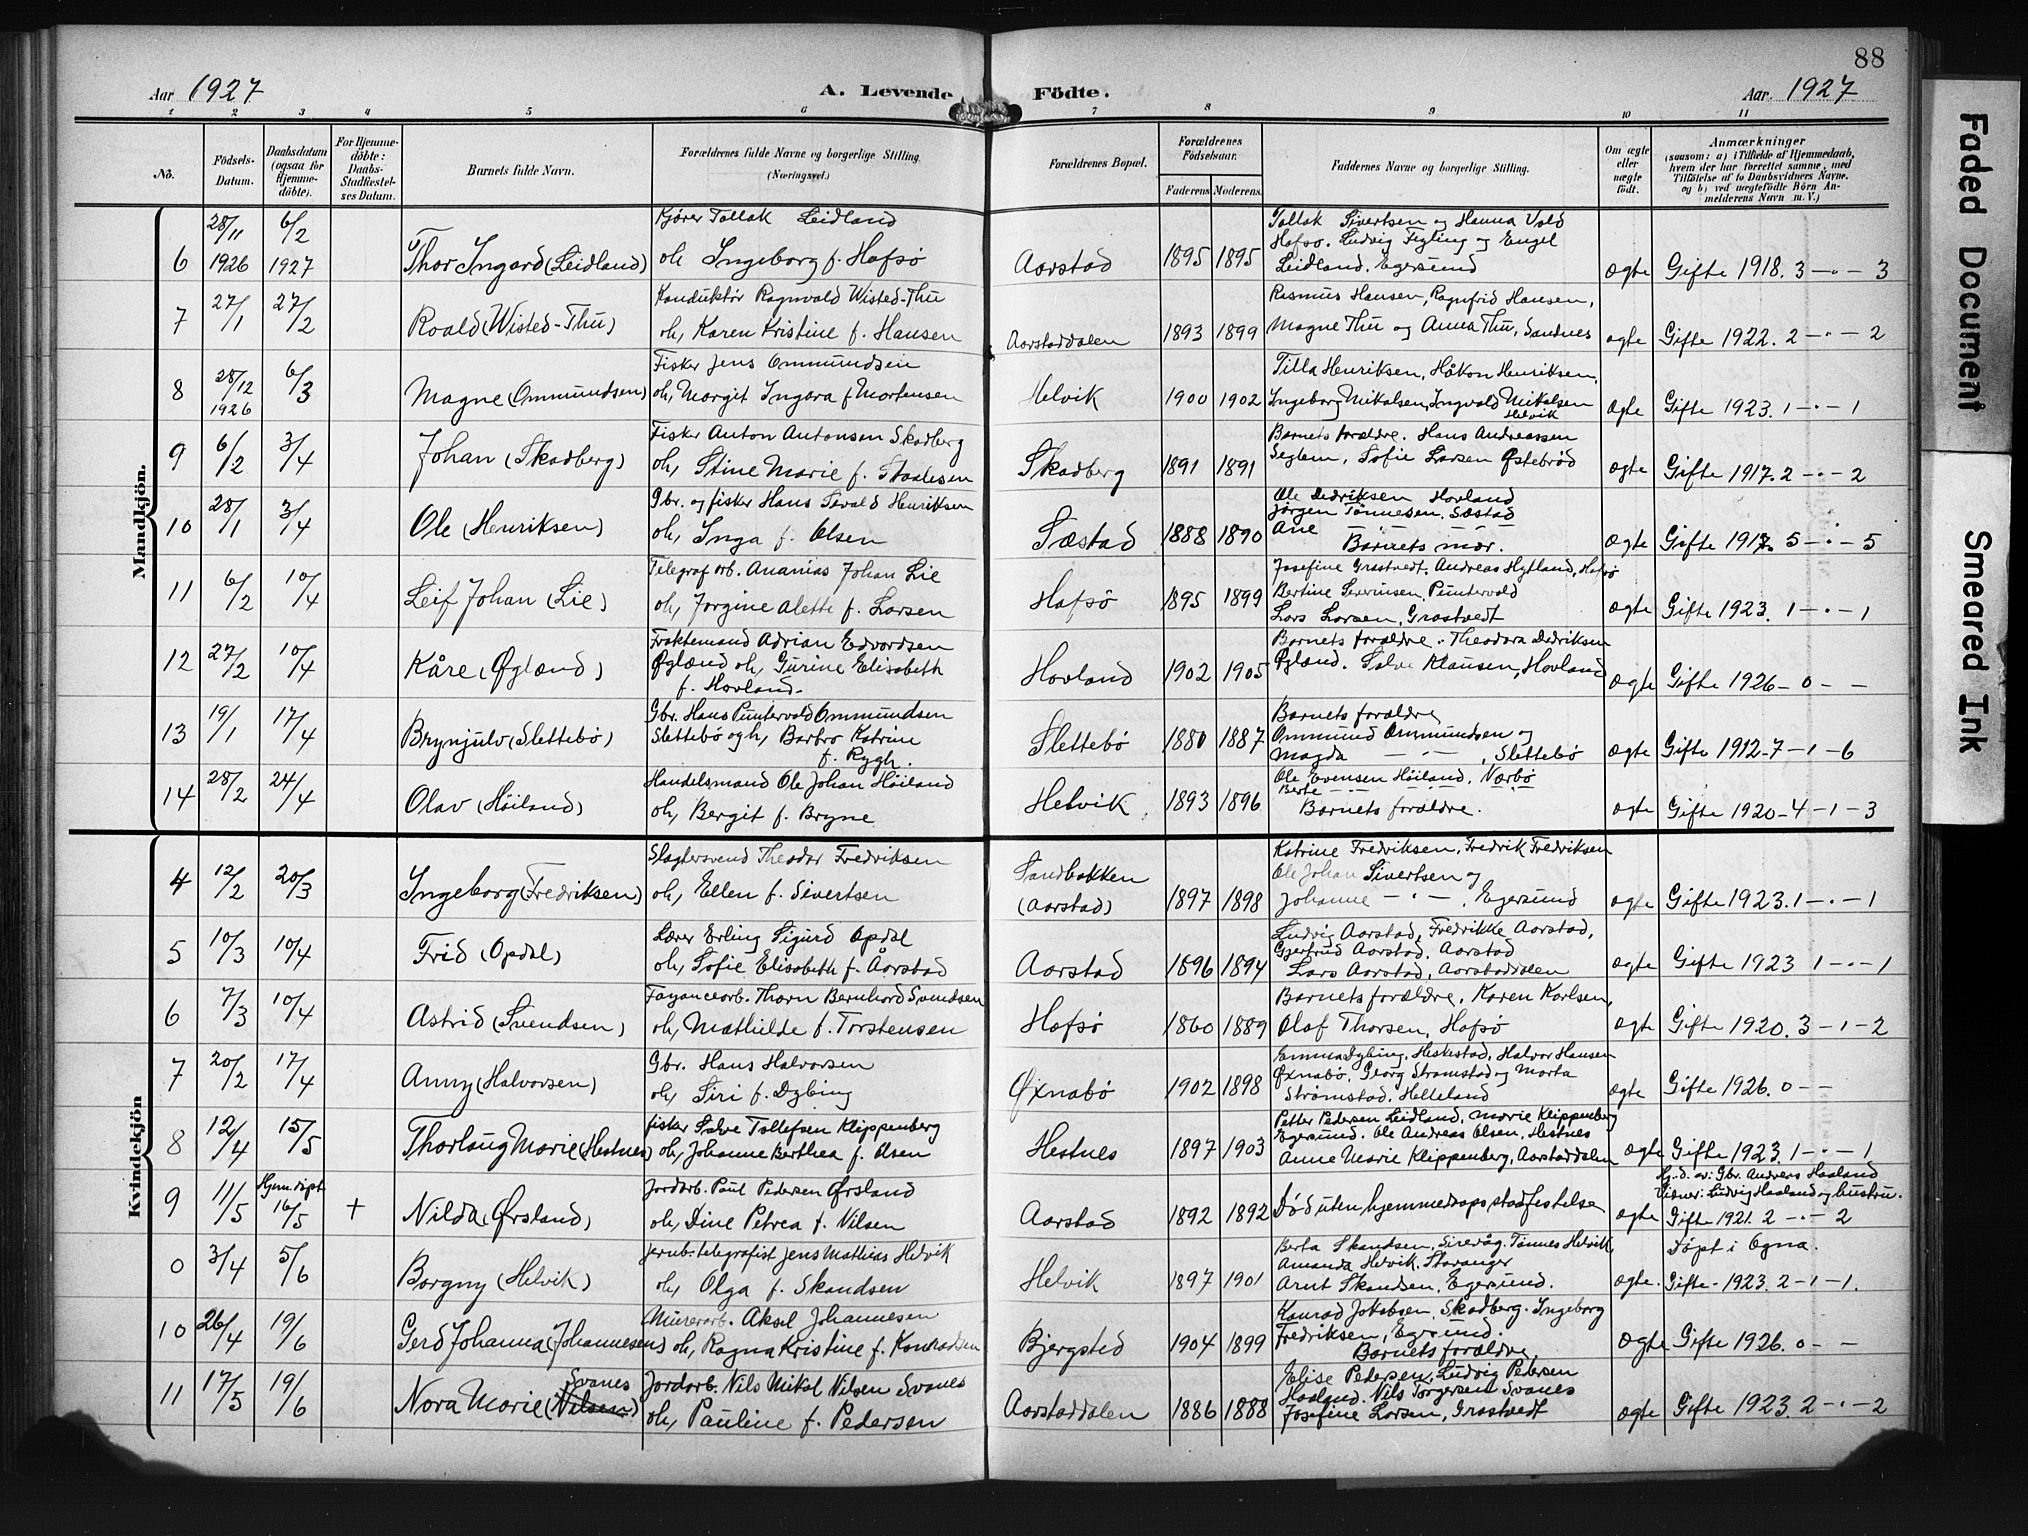 88
Aar 1927
A. Levende Födte.
Aar. 1927
1 2 3 4 5 6 7 8 9 10 11
No.
Födsels-Datum.
Daabsdatum (ogsaa for Hjemme-döbte).
For Hjemme-döbte: Daabs-Stadfæstel-ses Datum.
Barnets fulde Navn.
Forældrenes fulde Navne og borgerlige Stilling. (Næringsvei.)
Forældrenes Bopæl.
Forældrenes Födselsaar.
Faderens. Moderens.
Faddernes Navne og borgerlige Stilling.
Om ægte eller uægte födt.
Anmærkninger
(saasom: a) i Tilfælde af Hjemmedaab, hvem der har forrettet samme, med Tilföielse af to Daabsvidners Navne. og b) ved uægtefödte Börn An-melderens Navn m. V.)
Mandkjön.
6 28/11 1926 6/2 1927 Thor Ingard (Leidland) Kjører Tollak Leidland oh, Ingeborg f. Hafsø Aarstad 1895 1895 Tollak Sivertsen og Hanna Vold Hafsø. Ludvig Tegling og Engel Leidland. Egersund ægte Gifte 1918. 3 - · - 3
7 27/1 27/2 Roald (Wisted-Thu) Konduktør Ragnvald Wisted-Thu oh, Karen Kristine f. Hansen Aarstaddalen 1893 1899 Rasmus Hansen, Ragnfrid Hansen, Magne Thu og Anna Thu, Sandnes ægte Gifte 1922. 2 - · - 2
8 28/12 1926 6/3 Magne (Ommundsen) Fisker Jens Ommundsen oh, Margit Ingara f Mortensen Helvik 1900 1902 Tilla Henriksen, Håkon Henriksen, Ingeborg Mikalsen, Ingvald Mikalsen Helvik ægte Gifte 1923. 1 - · - 1
9 6/2 3/4 Johan (Skadberg) Fisker Anton Antonsen Skadberg oh, Stine Marie f. Staalesen Skadberg 1891 1891 Barnets forældre. Hans Andreassen Seglem, Sofie Larsen Østebrød ægte Gifte 1917. 2 - · - 2
10 28/1 3/4 Ole (Henriksen) Gbr. og fisker Hans Sevald Henriksen oh, Inga f. Olsen Sæstad 1888 1890 Ole Dedriksen Hovland Jørgen Tønnesen, Sæstad Ane - · - - · - Barnets mor. ægte Gifte 1912. 5 - · - 5
11 6/2 10/4 Leif Johan (Lie) Telegraf arb. Ananias Johan Lie oh, Jorgine Alette f. Larsen Hafsø 1895 1899 Josefine Grastvedt. Andreas Hytland, Hafsø Bertine Severinsen, Puntervold Lars Larsen, Grastvedt ægte Gifte 1923. 1 - · - 1
12 27/2 10/4 Kåre (Øglænd) Fraktemand Adrian Edvardsen Øglænd oh, Gurine Elisabeth f. Hovland. Hovland 1902 1905 Barnets forældre. Theodora Dedriksen Øglænd. Salve Klausen, Hovland ægte Gifte 1926 - 0 - -
13 19/1 17/4 Brynjulv (Slettebø) Gbr. Hans Puntervold Ommundsen Slettebø og h, Barbro Katrine f. Rygh. Slettebø 1880 1887 Barnets forældre, Ommund Ommundsen og Magda - · - , Slettebø ægte Gifte 1912 - 7 - 1 - 6
14 28/2 24/4 Olav (Høiland) Handelsmand Ole Johan Høiland oh, Bergit f. Bryne Helvik 1893 1896 Ole Evensen Høiland, Nærbø Berte - · - - · - Barnets forældre. ægte Gifte 1920 - 4 - 1 - 3
Kvindekjön
4 12/2 20/3 Ingeborg (Fredriksen) Slagtersvend Theodor Fredriksen oh, Ellen f. Sivertsen Sandbakken (Aarstad) 1897 1898 Katrine Fredriksen, Fredrik Fredriksen Ole Johan Sivertsen og Johanne - · - , Egersund ægte Gifte 1923. 1 - · - 1
5 10/3 10/4 Frid (Opdal) Lærer Erling Sigurd Opdal oh, Sofie Elisabeth f. Aarstad Aarstad 1896 1894 Ludvig Aarstad, Fredrikke Aarstad, Gjertrud Aarstad, Aarstad Lars Aarstad, Aarstaddalen ægte Gifte 1923 1 - · - 1
6 7/3 10/4 Astrid (Svendsen) Fayancearb. Thorn Bernhard Svendsen oh, Mathilde f. Torstensen Hafsø 1860 1889 Barnets forældre, Karen Karlsen, Olaf Thorsen, Hafsø ægte Gifte 1920. 3 - 1 - 2
7 20/2 17/4 Anny (Halvorsen) Gbr. Hans Halvorsen oh, Siri f. Dybing Øxnabø 1902 1898 Emma Dybing, Heskestad, Halvor Hansen Øxnabø, Georg Strømstad og Marta Strømstad, Helleland ægte Gifte 1926. 0 - -
8 12/4 15/5 Thorlaug Marie (Hestnes) fisker Salve Tollefsen Klippenberg oh, Johanne Berthea f. Olsen Hestnes 1897 1903 Petter Pedersen Leidland, Marie Klippenberg Egersund. Ole Andreas Olsen, Hestnes Anne Marie Klippenberg, Aarstaddalen ægte Gifte 1923. 1 - · - 1
9 11/5 Hjem.døpt 16/5 + Nilda (Ørsland) Jordarb. Paul Pedersen Ørsland oh, Dine Petrea f. Nilsen Aarstad 1892 1892 Død uten hjemmedaps stadfestelse ægte Hj.d. av: Gbr. Andreas Haaland Vidner: Ludvig Haaland og hustru. Gifte 1921. 2 - · - 2
0 3/4 5/6 Borgny (Helvik) Jernb. telegrafist Jens Mathias Helvik oh, Olga f. Skandsen Helvik 1897 1901 Berta Skandsen, Sirevåg. Tønnes Helvik, Amanda Helvik, Stavanger Arnt Skandsen, Egersund. ægte. Døpt i Ogna. Gifte - 1923. 2 - 1 - 1.
10 26/4 19/6 Gerd Johanna (Johannesen) Murerarb. Aksel Johannesen oh, Ragna Kristine f. Konradsen Bjergsted 1904 1899 Konrad Jakobsen, Skadberg. Ingeborg Fredriksen, Egersund. Barnets forældre. ægte Gifte 1926. 0 - -
11 17/5 19/6 Nora Marie (Nilsen) Svanes Jordarb. Nils Mikal Nilsen Svanes oh, Pauline f. Pedersen Aarstaddalen 1886 1888 Elise Pedersen, Ludvig Pedersen Haaland. Nils Torgersen Svanes Josefine Larsen, Grastvedt ægte Gifte 1923. 2 - · - 2
Faded Document
Smeared Ink